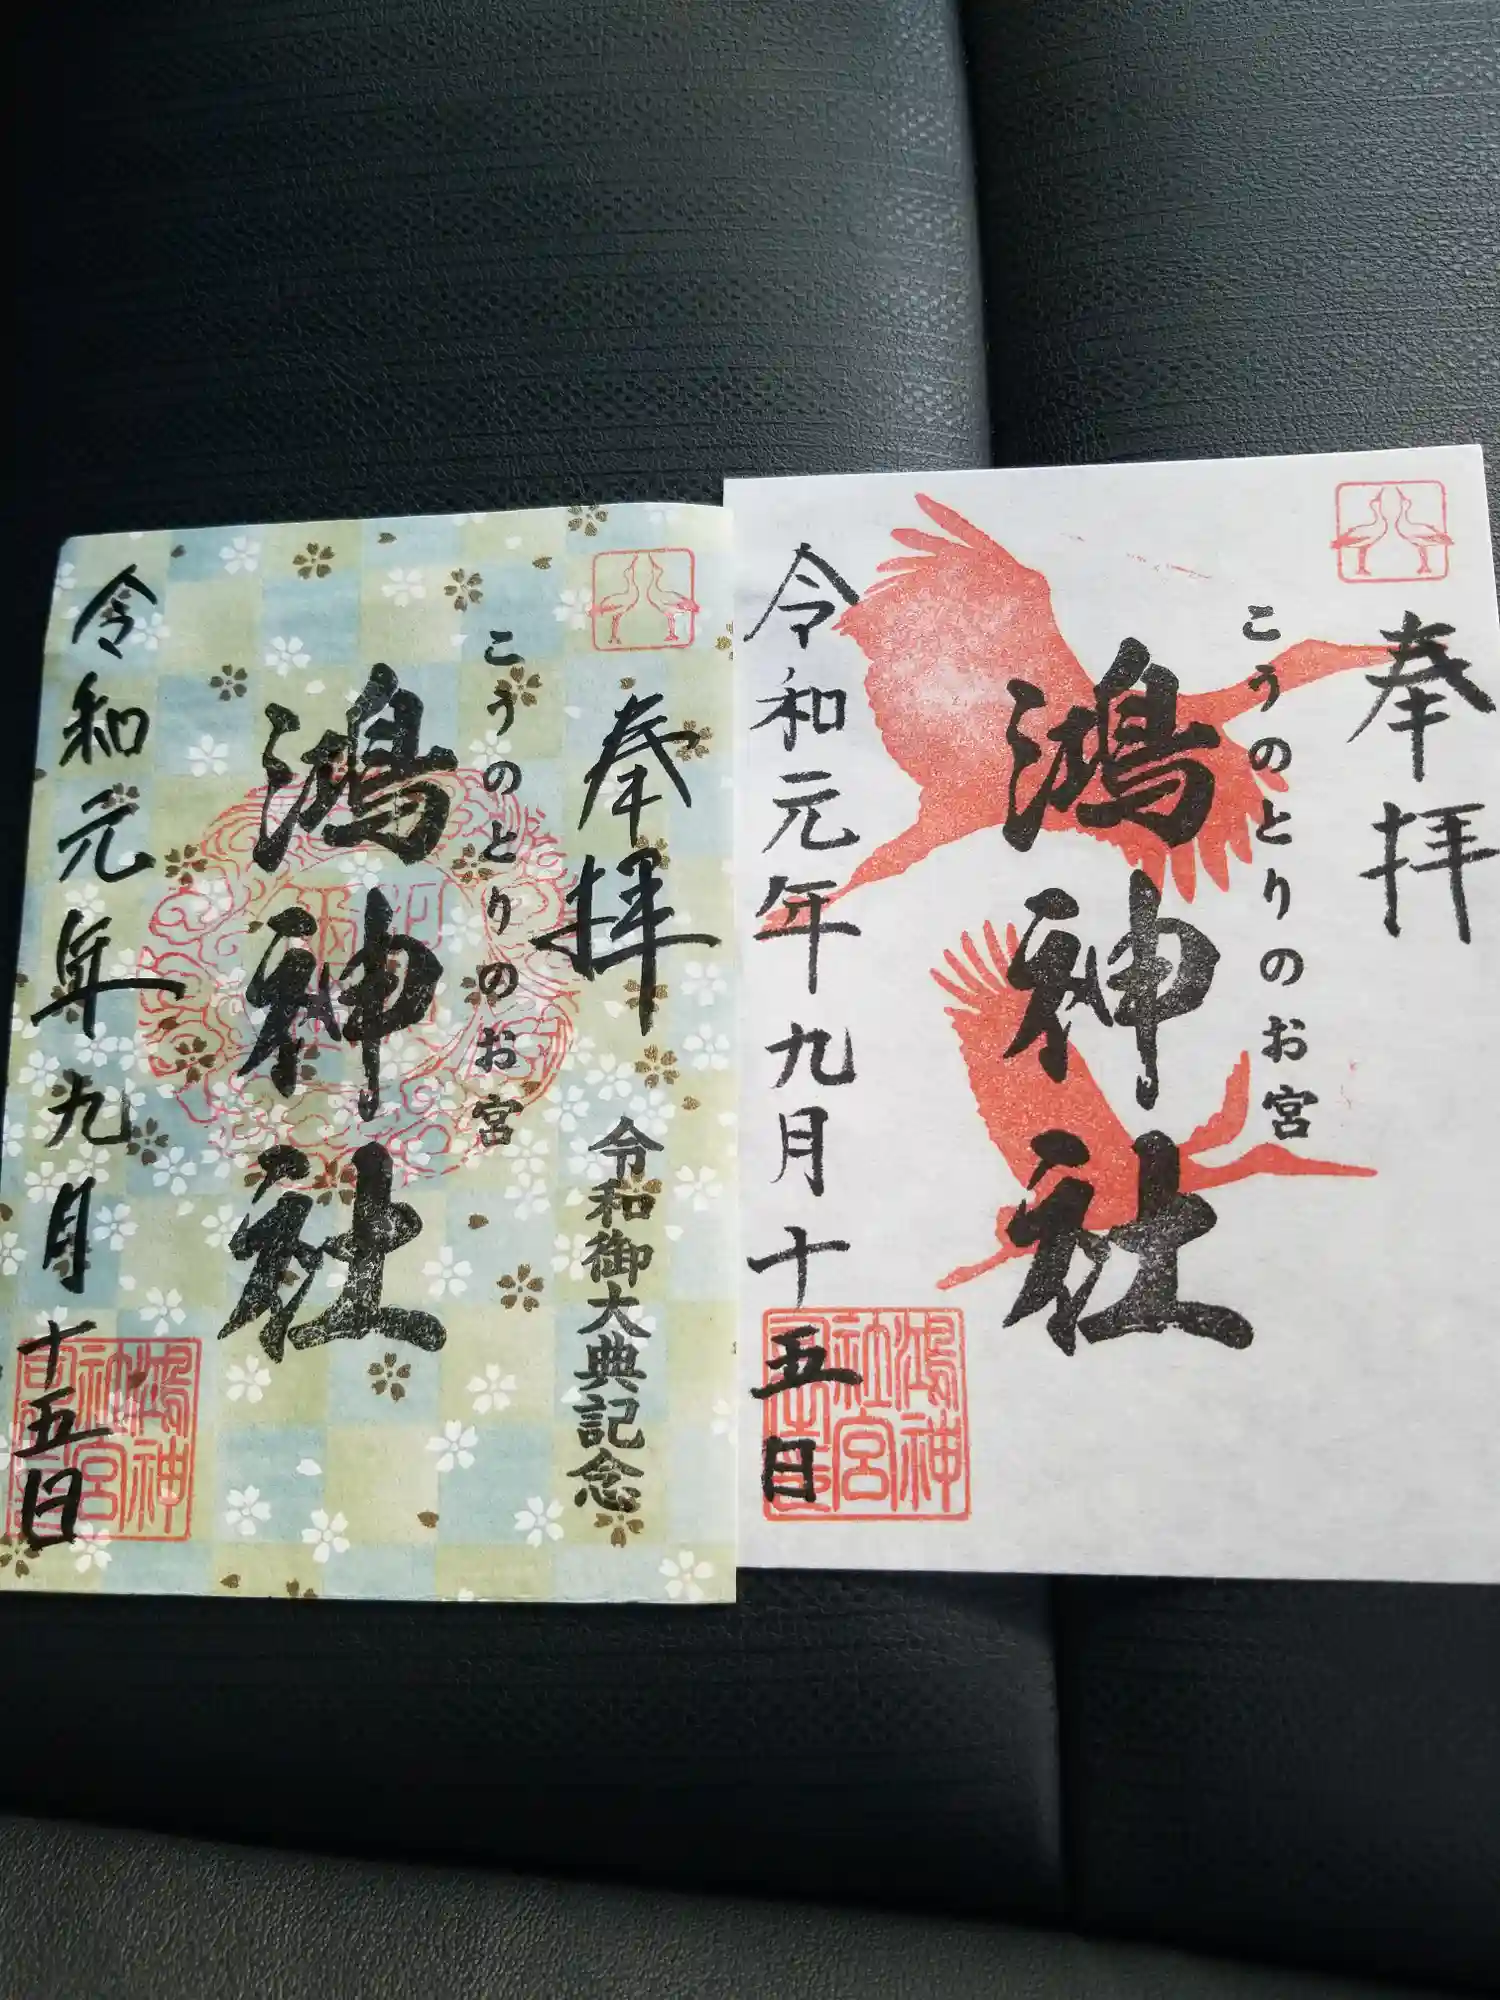 奉拝
令和御大典記念
こうのとりのお宮
鴻神社
令和元年九月十五日
奉拝
こうのとりのお宮
鴻神社
令和元年九月十五日
鴻神
社宮